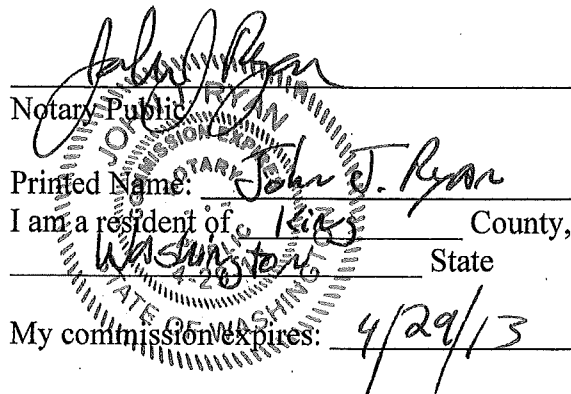 John J Ryan
Notary Public
Printed Name: John J. Ryan
I am a resident of King County,
Washington State
My commission expires: 4/29/13
JOHN J. RYAN
COMMISSION EXPIRES
NOTARY
PUBLIC
STATE OF WASHINGTON